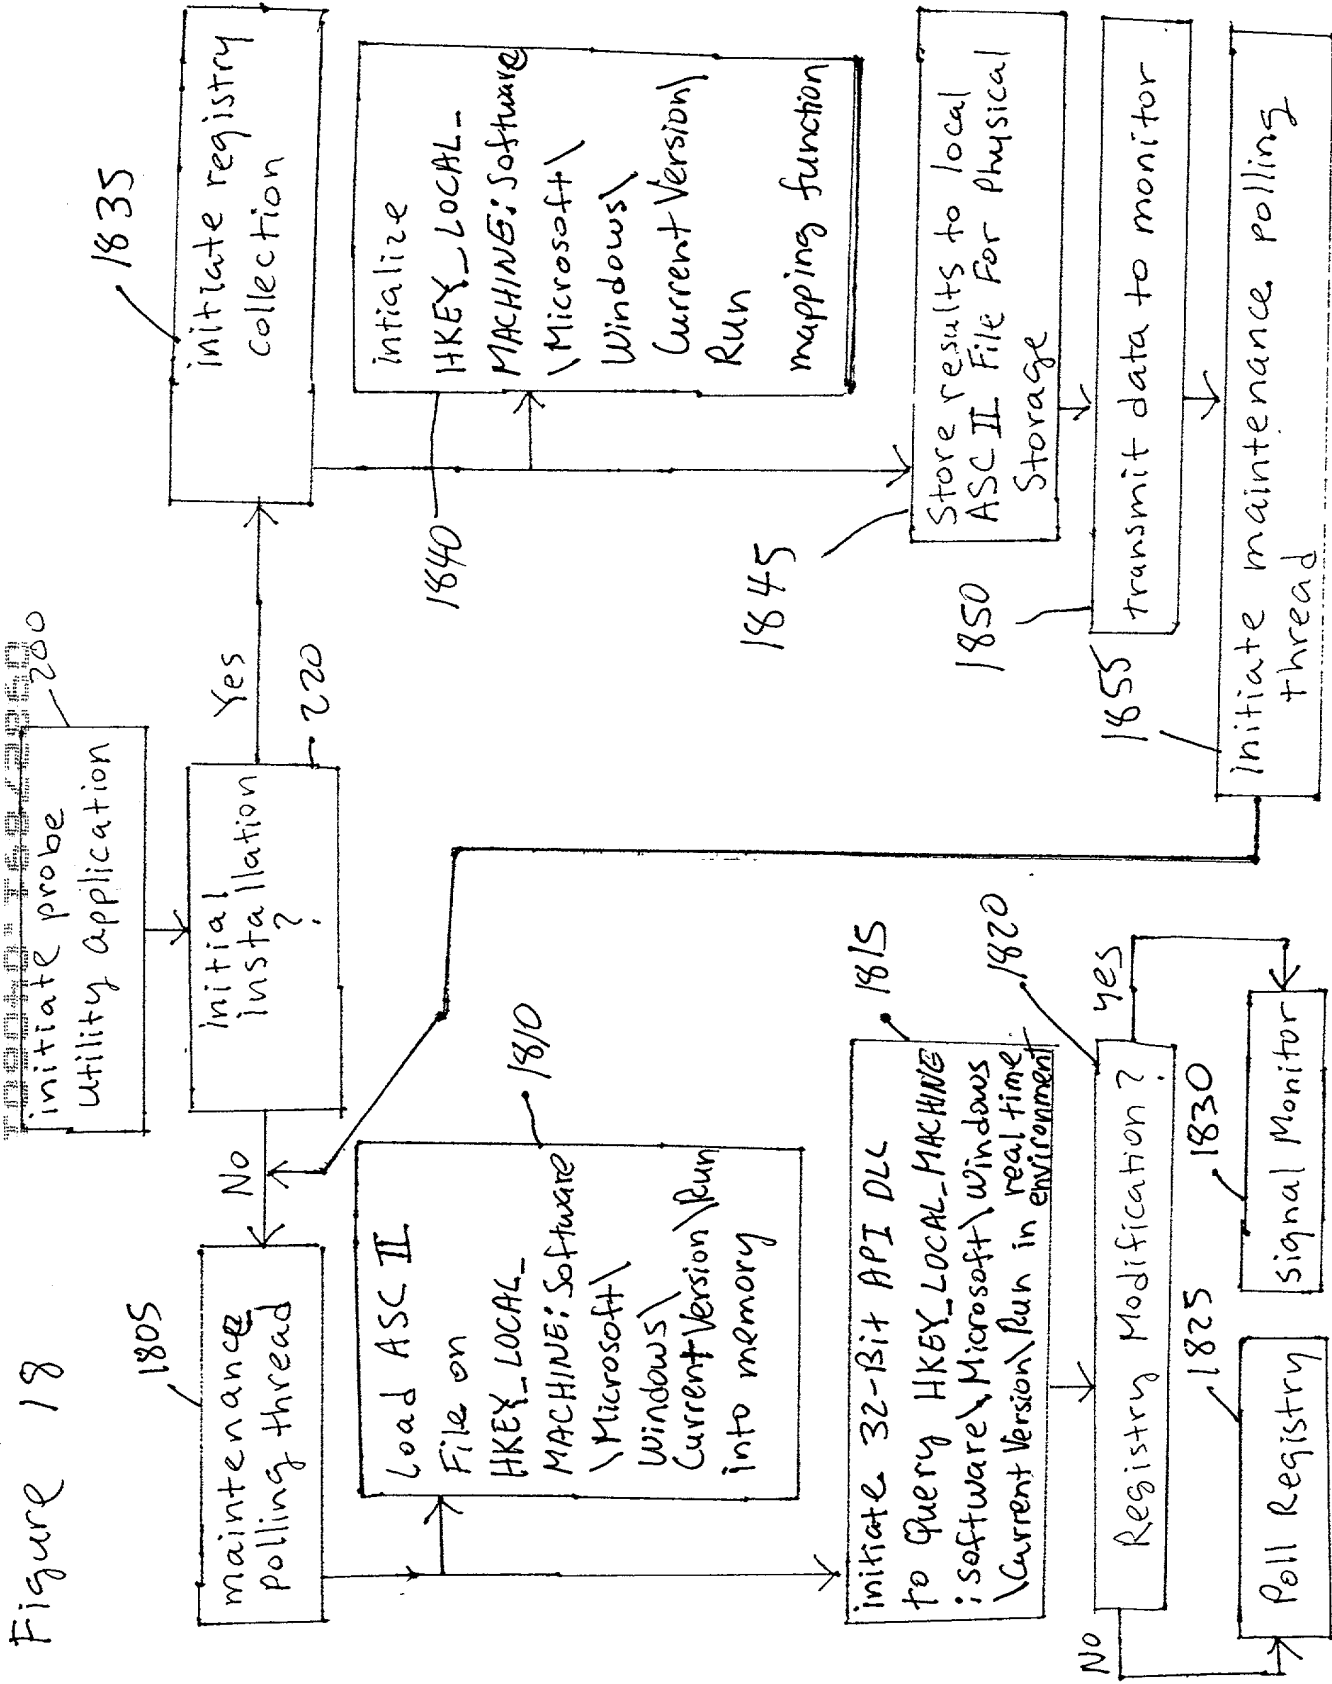 Figure 18
initiate probe
utility application
200
initial
installation
?
220
No
Yes
maintenance
polling thread
1805
Load ASC II
File on
HKEY_LOCAL_
MACHINE:Software
\Microsoft\
Windows\
CurrentVersion\Run
into memory
1810
initiate 32-Bit API DLL
to Query HKEY_LOCAL_MACHINE
:software\Microsoft\Windows
\Current Version\Run in real time
environment
1815
Registry Modification?
1820
No
yes
Poll Registry
1825
Signal Monitor
1830
initiate registry
collection
1835
intialize
HKEY_LOCAL_
MACHINE:Software
\Microsoft\
Windows\
Current Version\
Run
mapping function
1840
Store results to local
ASC II File For Physical
Storage
1845
transmit data to monitor
1850
initiate maintenance polling
thread
1855